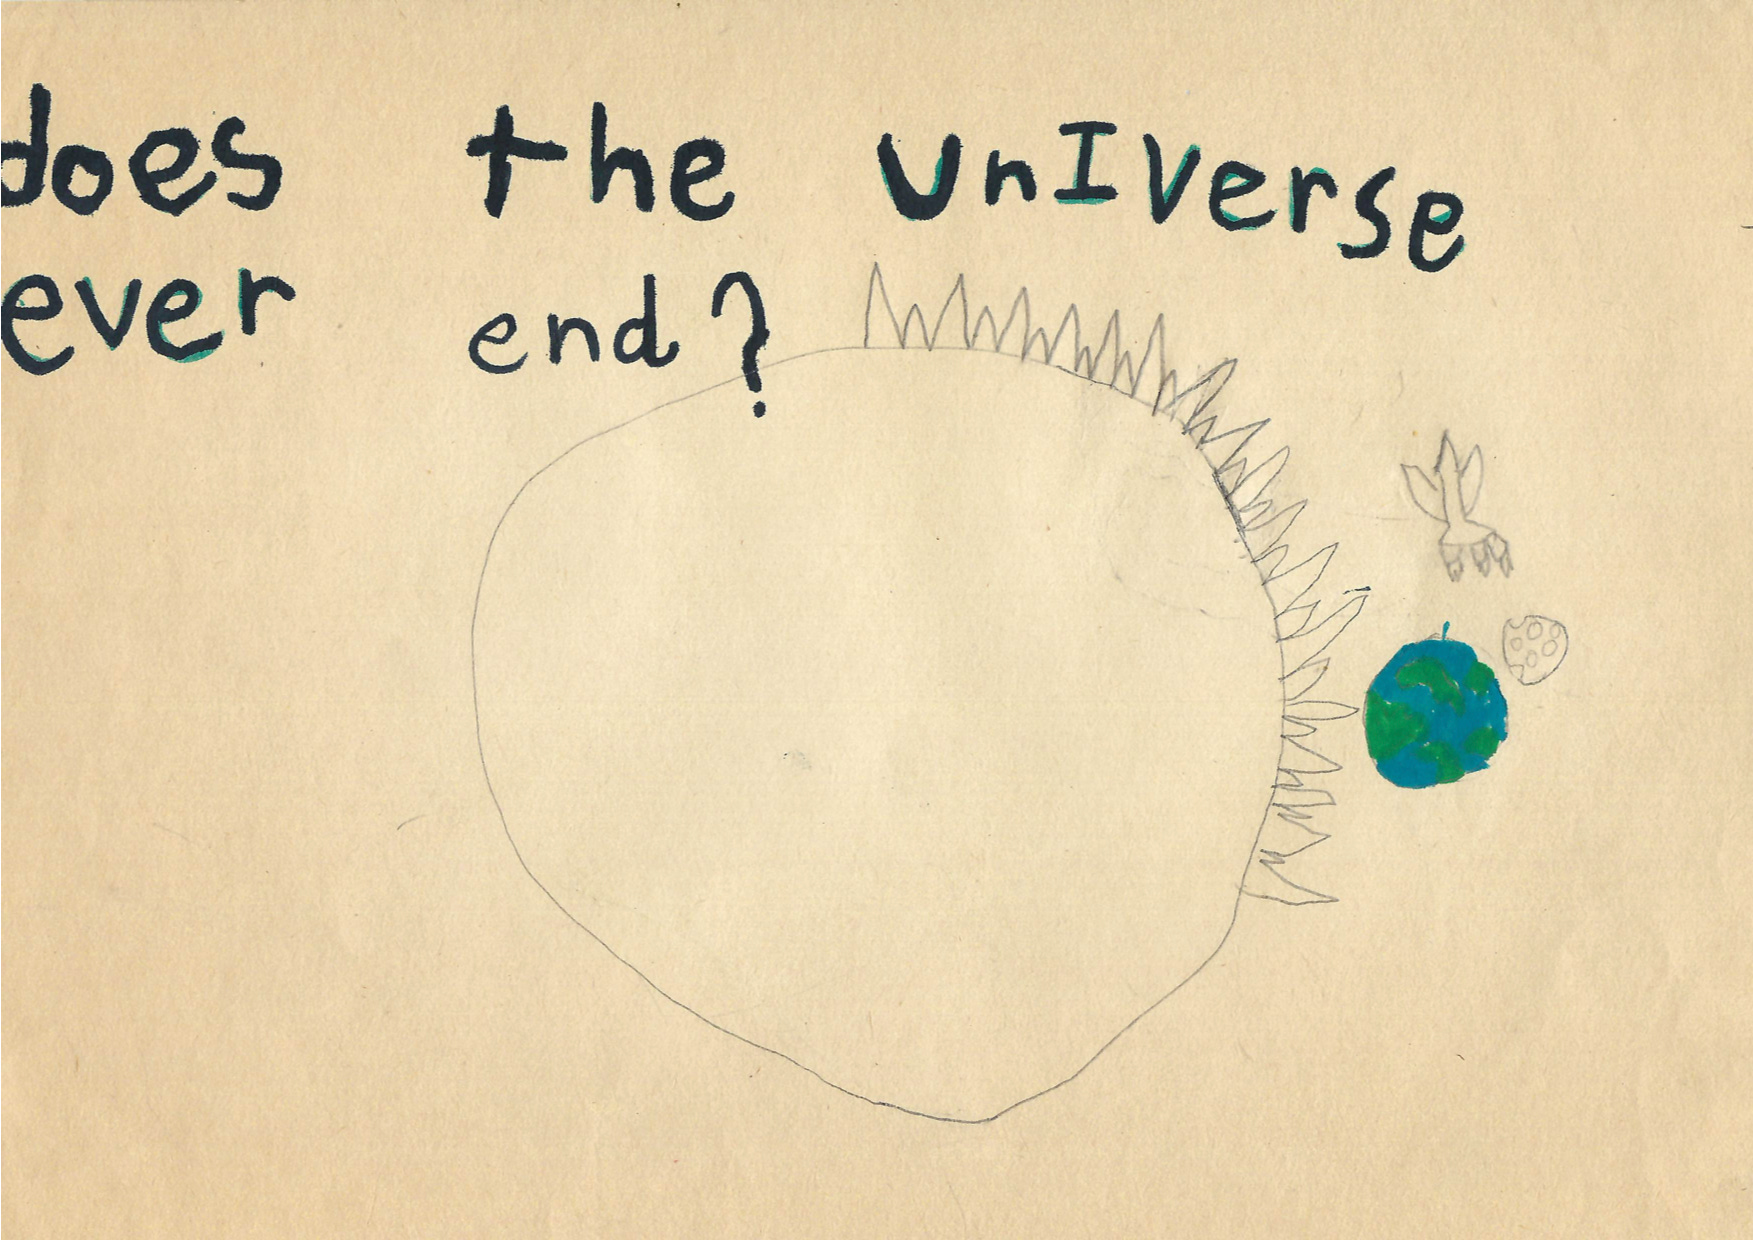 does the unIverse
ever end?